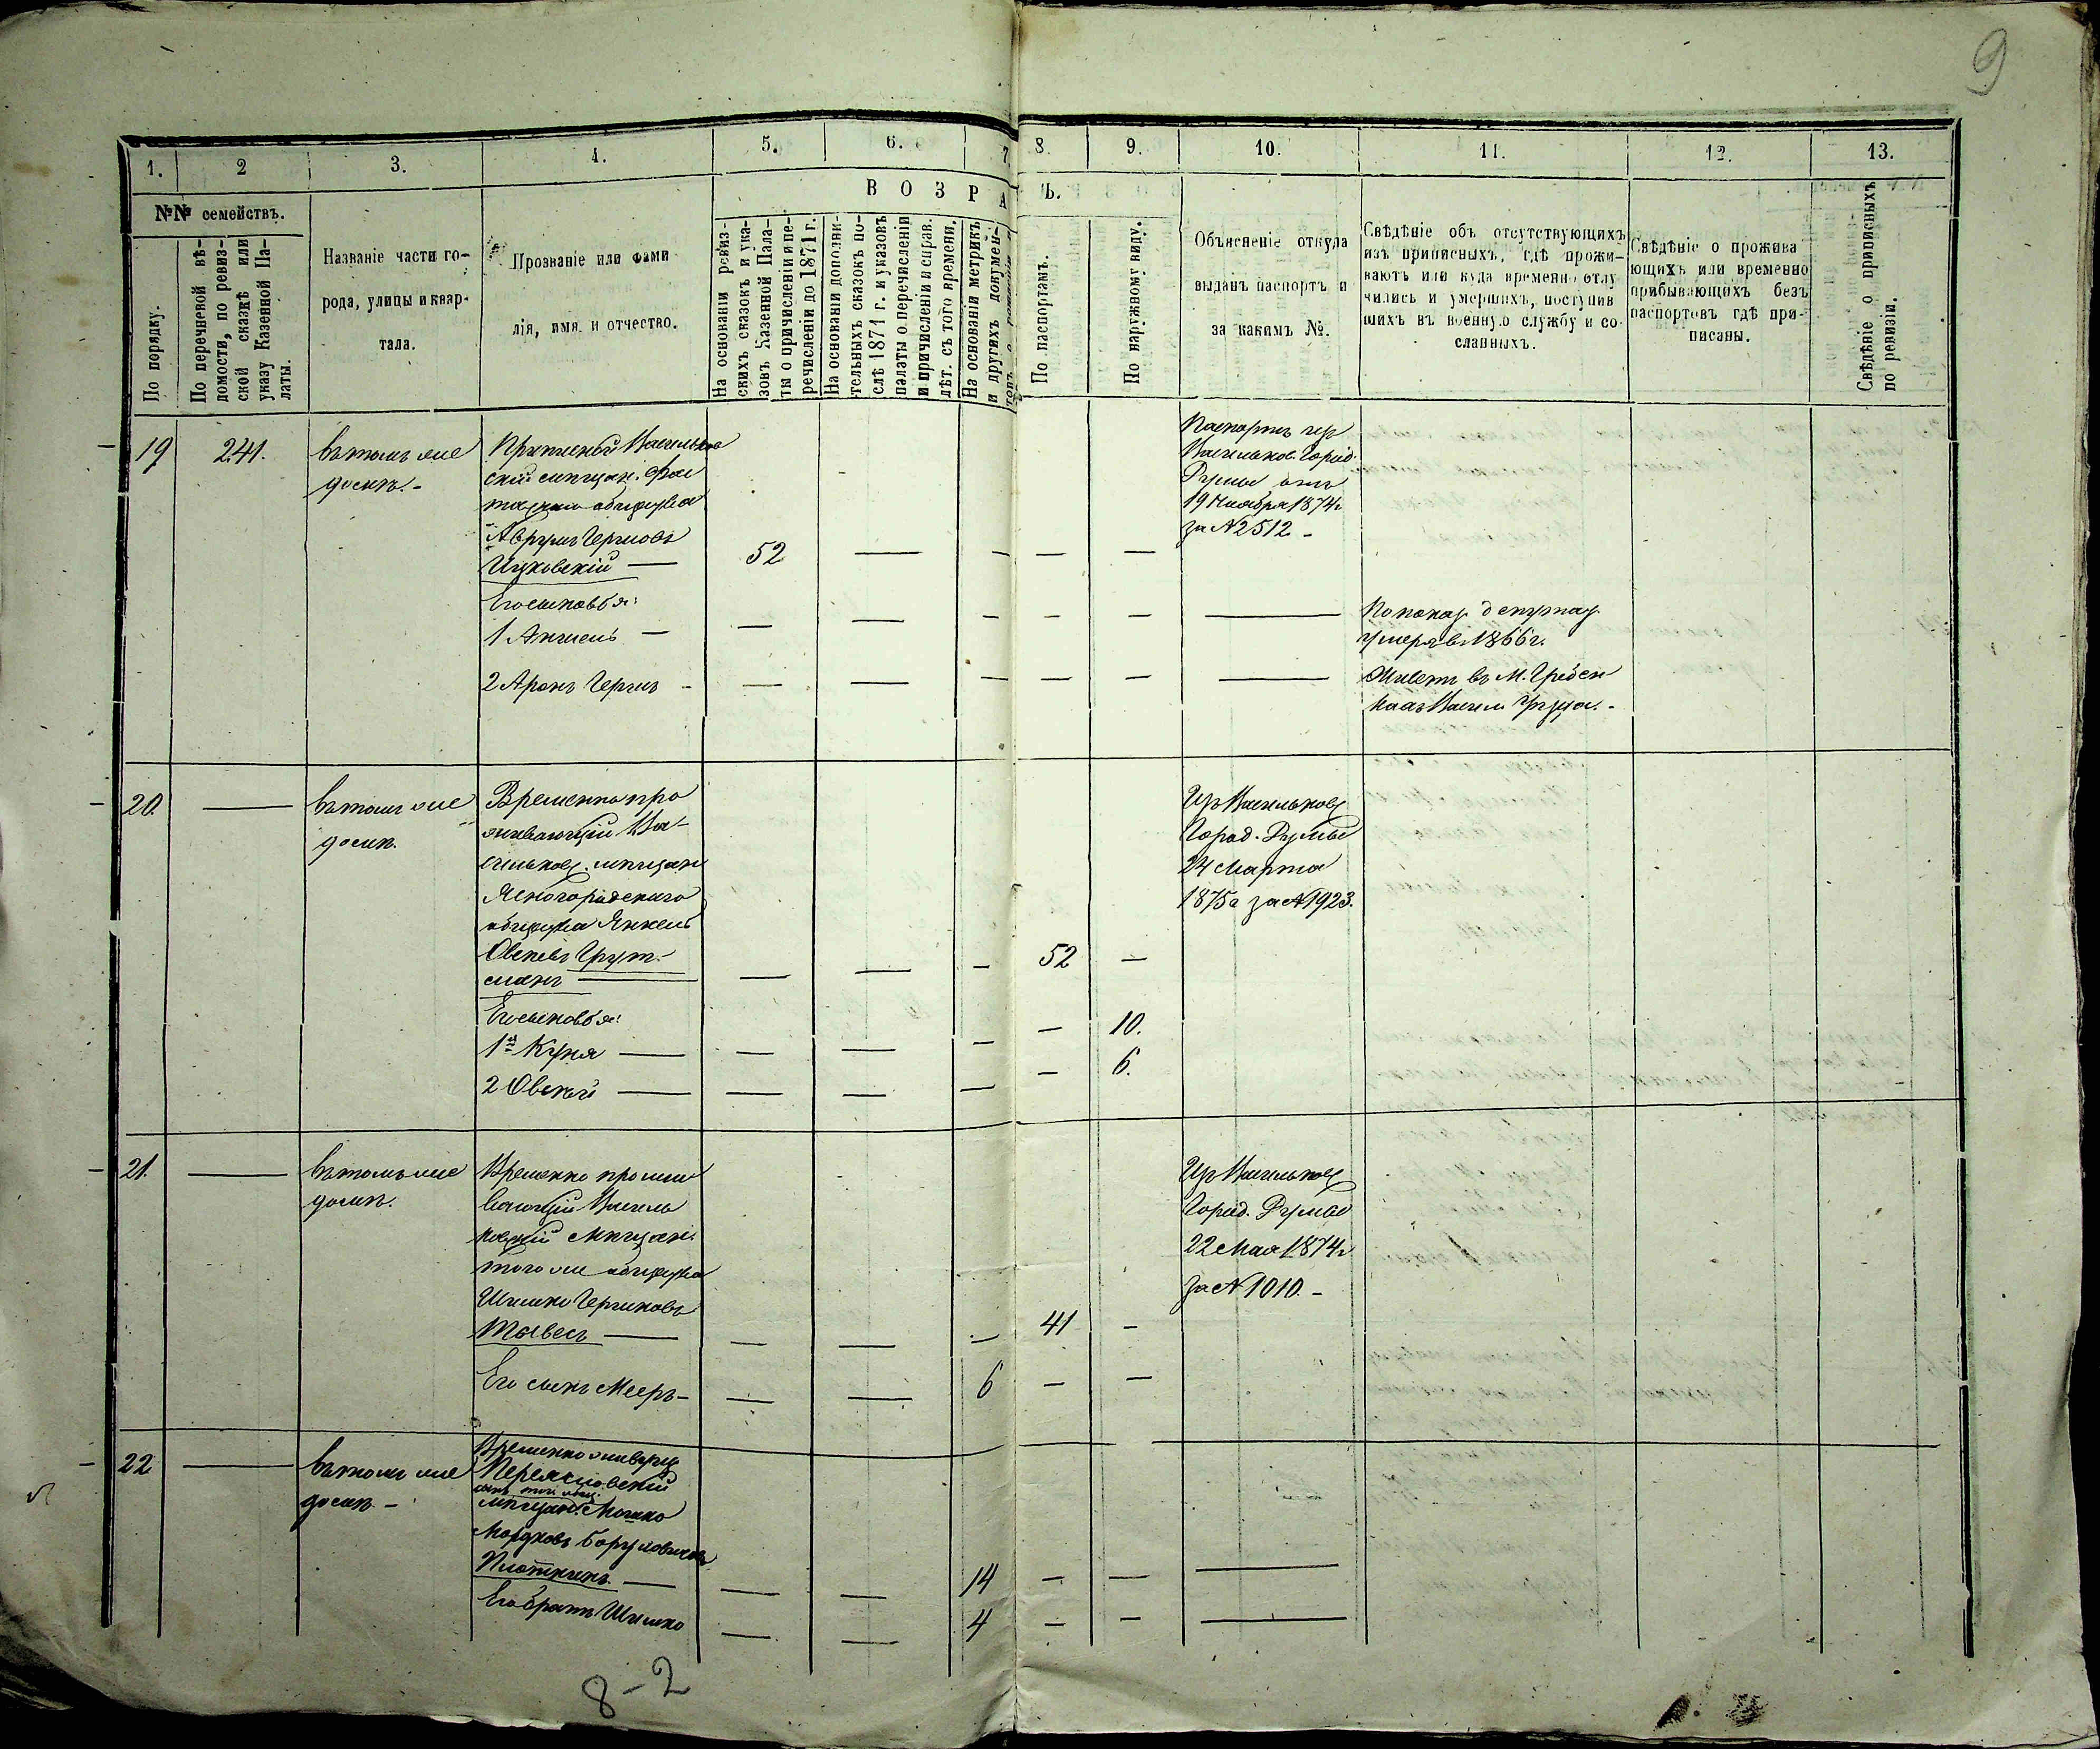 9
1. 2 3. 4. 5. 6. 7 8. 9. 10. 11. 12. 13.
№№ семействъ.
По порядку.
По перечневой вѣ-
домости, по ревиз-
ской сказкѣ или
указу Казенной Па-
латы.
Названіе части го-
рода, улицы и квар-
тала.
Прозваніе или фами
лія, имя и отчество.
ВОЗРА
Ъ.
На основаніи ревиз-
скихъ сказокъ и ука-
зовъ Казенной Пала-
ты о причисленіи и пе-
речисленіи до 1871 г.
На основаніи дополни-
тельныхъ сказокъ по-
слѣ 1871 г. и указовъ
палаты о перечисленіи
и причисленіи и справ.
лѣт. съ того времени.
На основаніи метрикъ
и другихъ докумен-
По паспортамъ.
По наружному виду.
Объясненіе откуда
выданъ паспортъ и
за какимъ №.
Свѣдѣніе объ отсутствующихъ
изъ приписныхъ, гдѣ прожи-
ваютъ или куда временно отлу
чились и умершихъ, поступив
шихъ въ военную службу и со-
сланныхъ.
Свѣдѣніе о прожива
ющихъ или временно
прибывающихъ безъ
паспортовъ гдѣ при-
писаны.
Свѣдѣніе о приписныхъ
по ревизіи.
19 241. въ томъ же
домѣ.-
Приписной Васильков
скій мѣщан. Фас
товскаго общества
Аврумъ Гершовъ
Ицковскій — 52 — — — —
Паспортъ изъ
Васильков. Город.
Думы отъ
19 Ноября 1874г.
за №2512 -
Его сыновья:
1 Анчель — — — — — — —
По показ. депутат.
умеръ въ 1866 г.
2 Аронъ Гершъ - — — — — — —
Живетъ въ М. Гребен
кахъ Васил. уѣзда.-
20. — въ томъ же
домѣ.
Временно про
живающій Ва-
сильков. мѣщан
Ясногородскаго
общества Янкель
Овсеевъ Грут-
манъ — — — — 52 —
Изъ Васильков.
Город. Думы
24 Марта
1875г за №1923.
Его сыновья:
1й Куня — — — — — 10.
2 Овсей — — — — — 6.
21. — въ томъ же
домѣ.
Временно прожи
вающій Василь
ковскій Мѣщан.
того же общества
Шимко Гершковъ
Тывесъ — — — — 41 -
Изъ Васильков.
Город. Думы
22 Мая 1874г
за №1010. -
Его сынъ Мееръ - — — 6 — —
22 — въ томъ же
домѣ -
Временно живущ
Переясловскій
мѣщан. Мошко
Мордковъ Боруховичъ
Плоткинъ — — — 14 — — —
Его братъ Шимко — — 4 — — —
8-2